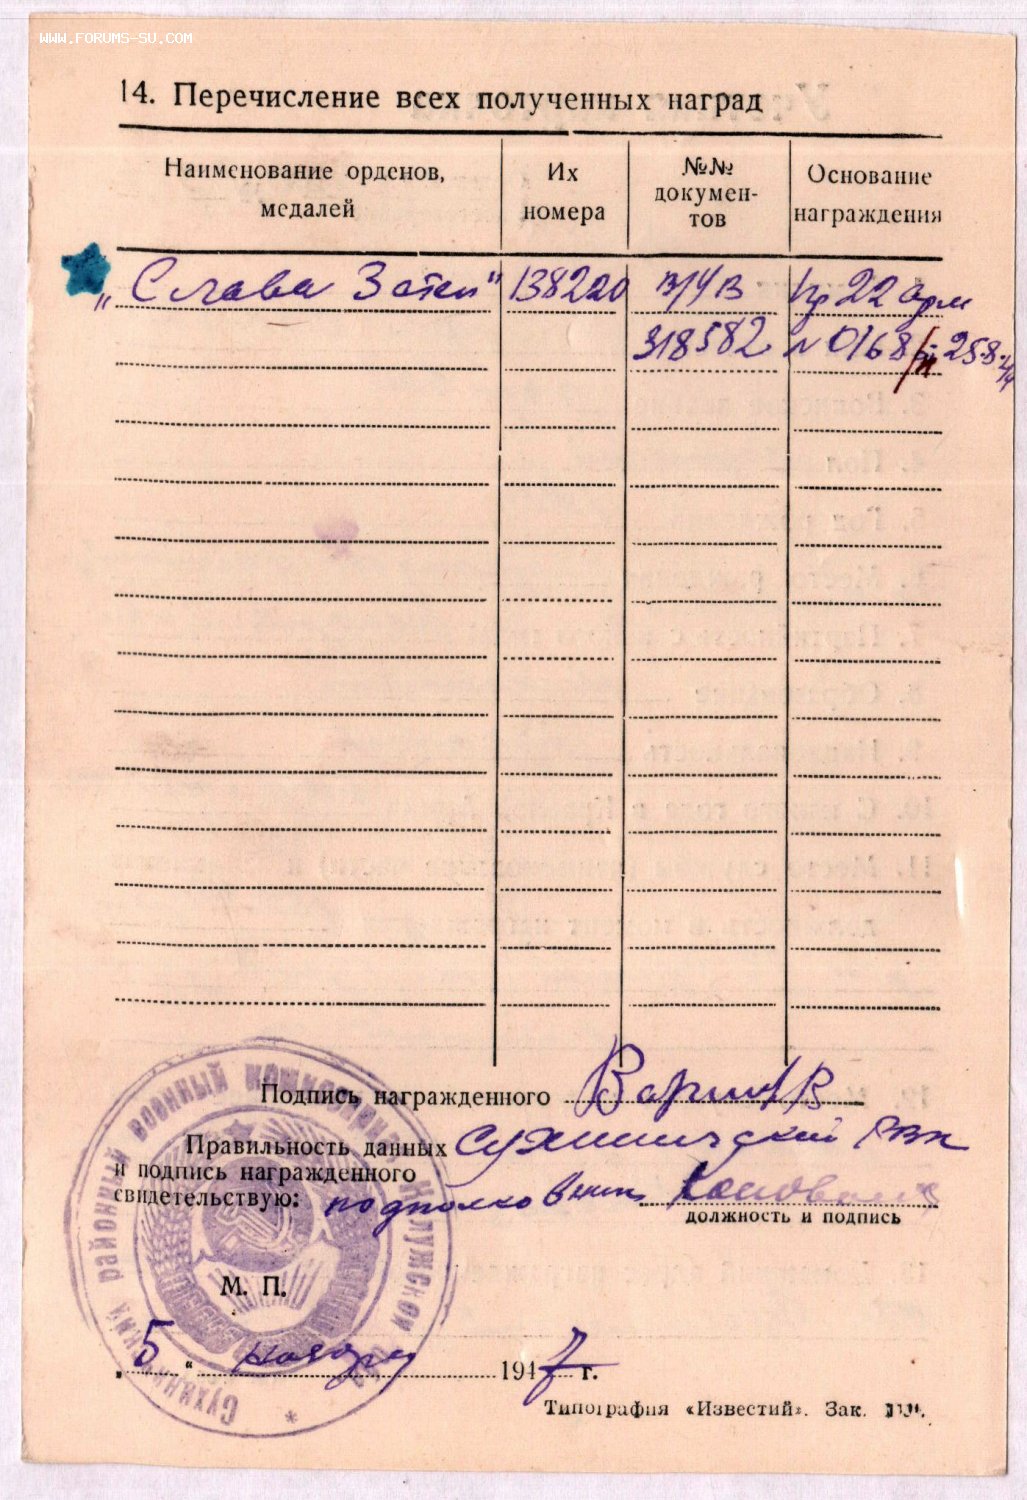 WWW.FORUMS-SU.COM
14. Перечисление всех полученных наград
Наименование орденов, медалей
Их номера
№№ докумен-
тов
Основание награждения
„Слава 3 степ" 138220 пр 22 арм
318582 № 0168/н 25.8.44
Подпись награжденного
Правильность данных Сухиничский РВК
и подпись награжденного
свидетельствую: подполковник
должность и подпись
М. П.
„5" ноября 1947 г.
Типография «Известий». Зак.
Сухиничский районный военный комиссариат Калужской